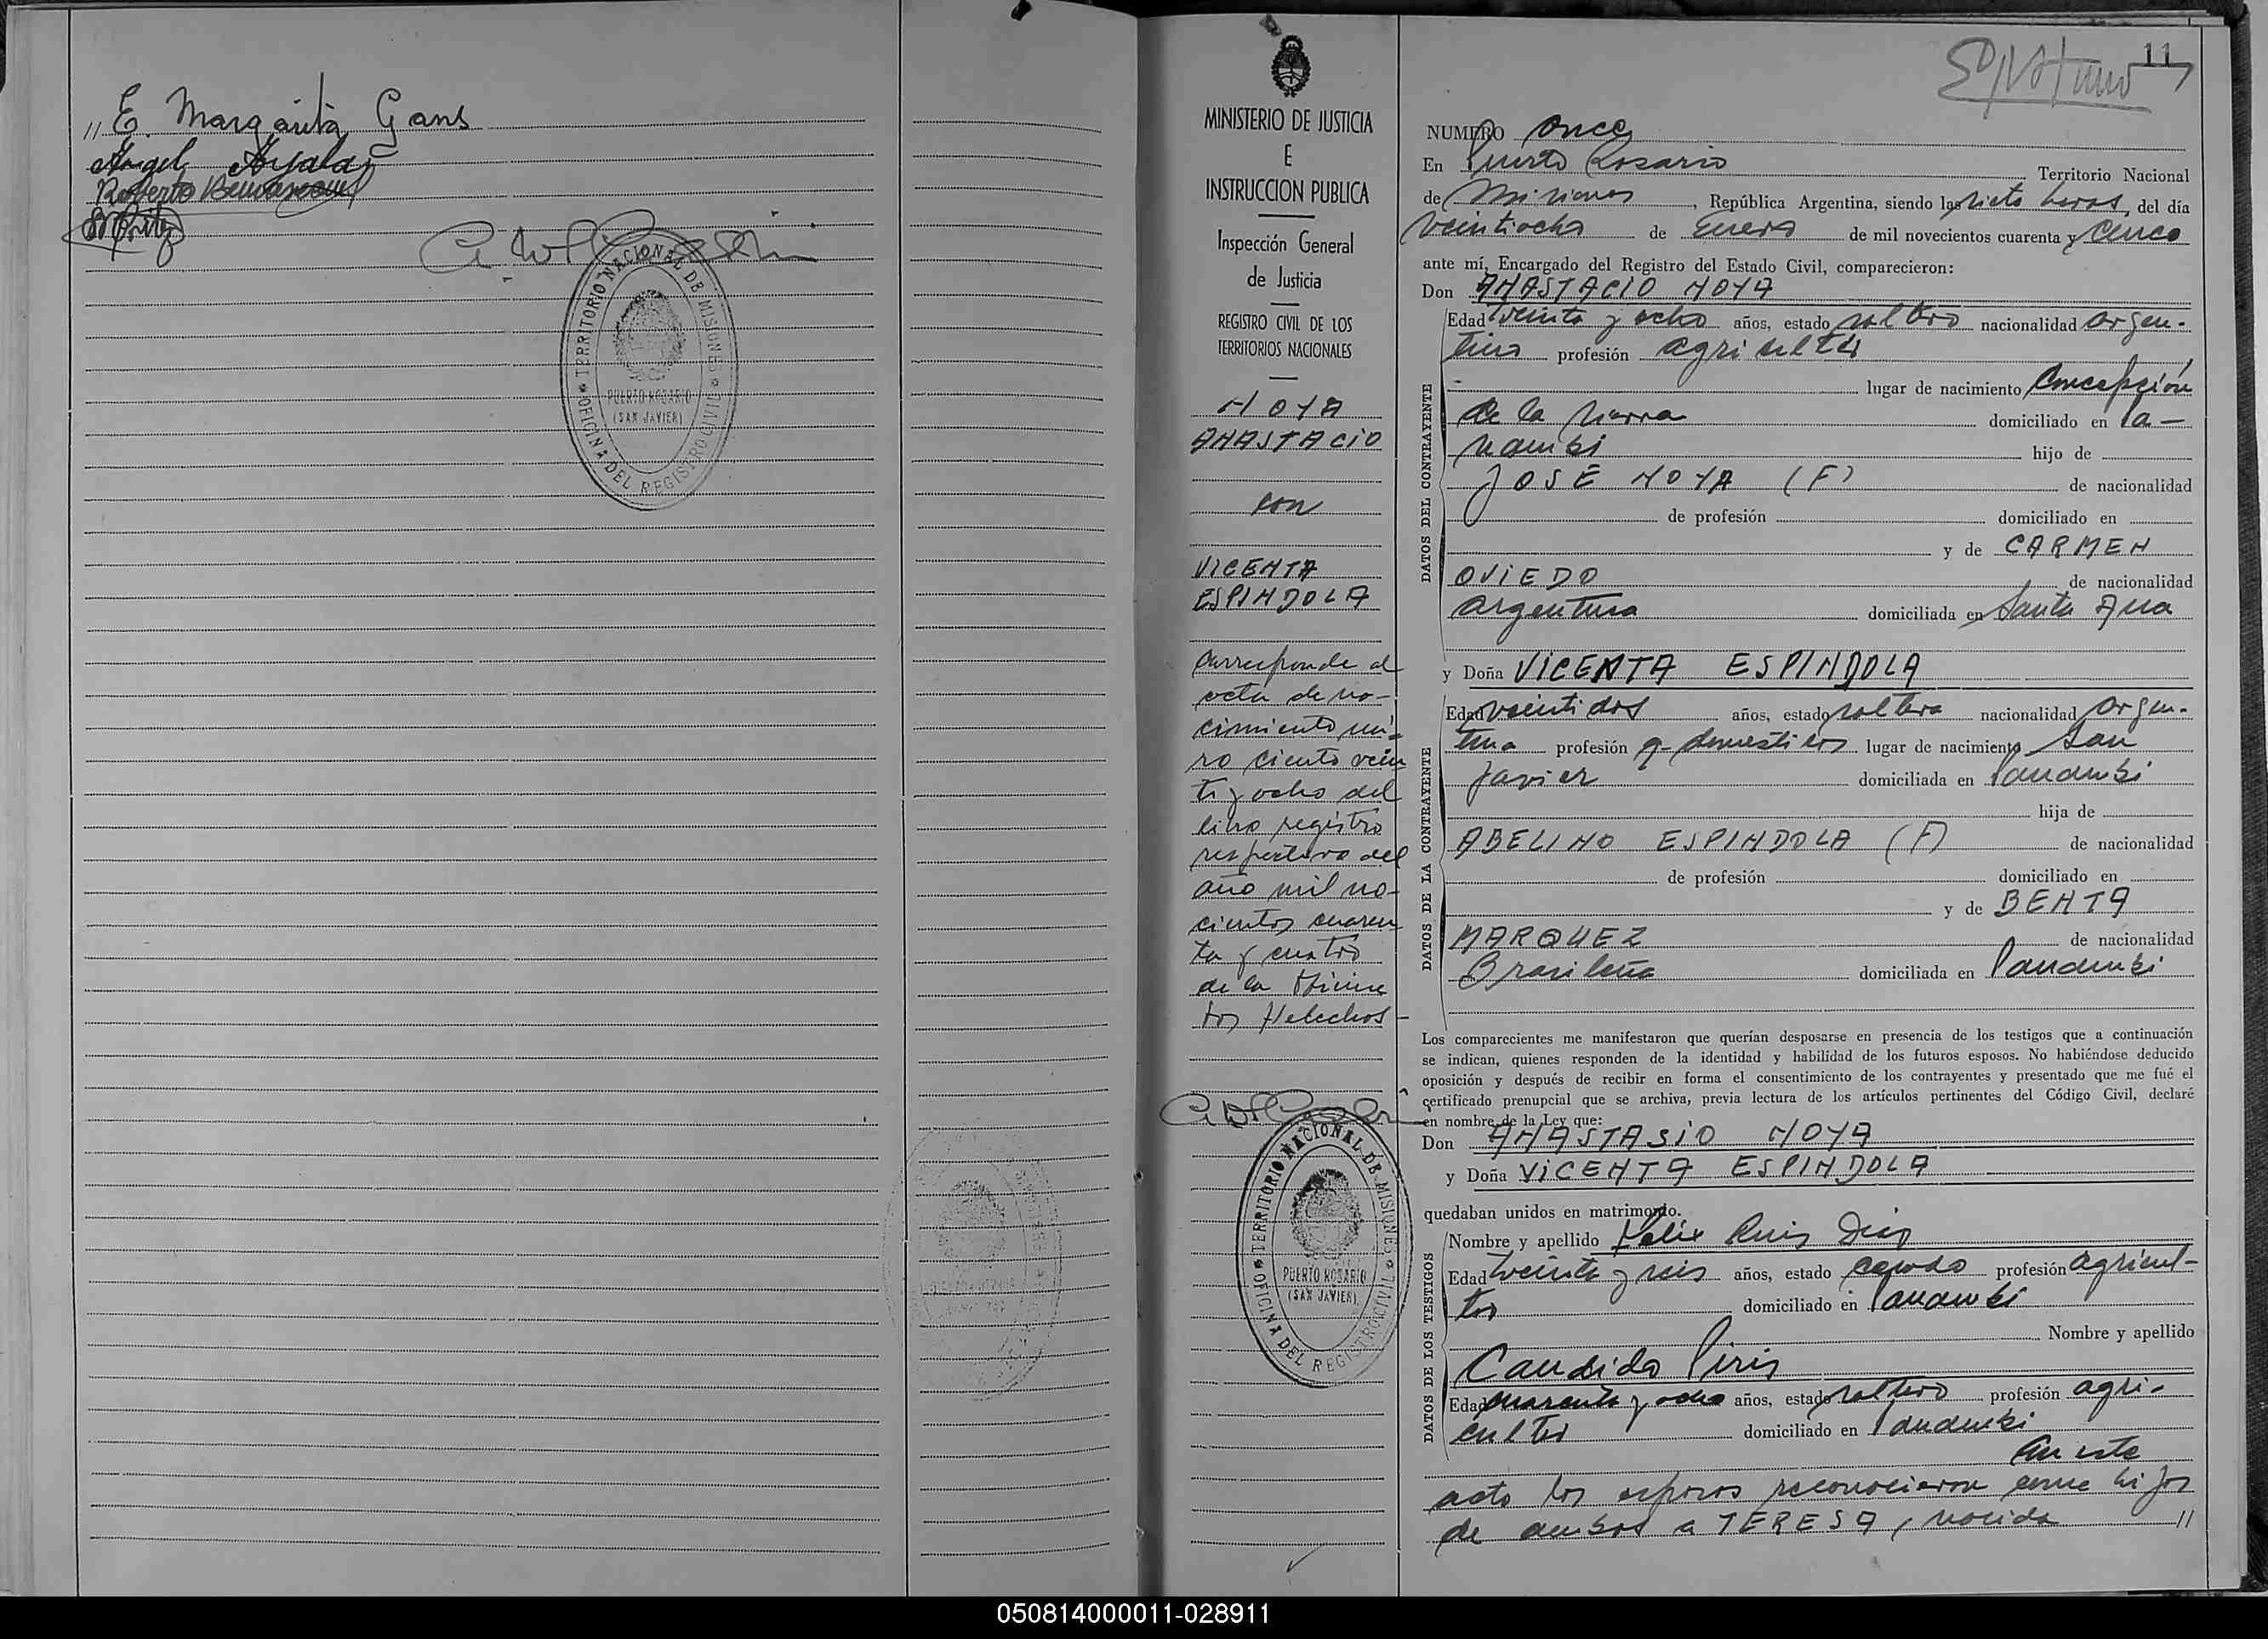 // E. Margarita Gans
Angel Ayala
Roberto
TERRITORIO NACIONAL DE MISIONES
PUERTO ROSARIO
(SAN JAVIER)
OFICINA DEL REGISTRO CIVIL
MINISTERIO DE JUSTICIA
E
INSTRUCCION PUBLICA
Inspección General
de Justicia
REGISTRO CIVIL DE LOS
TERRITORIOS NACIONALES
MOYA
ANASTACIO
con
VICENTA
ESPINDOLA
Corresponde al
acta de na-
cimiento nú-
ro ciento vein
ti y ocho del
libro registro
respectivo del
año mil no-
cientos cuaren
ta y cuatro
de la
tos Helechos
TERRITORIO NACIONAL DE MISIONES
PUERTO ROSARIO
(SAN JAVIER)
OFICINA DEL REGISTRO CIVIL
11
NUMERO once
En Puerto Rosario Territorio Nacional
de Misiones, República Argentina, siendo las siete horas, del día
veintiocho de Enero de mil novecientos cuarenta y cinco
ante mí, Encargado del Registro del Estado Civil, comparecieron:
DATOS DEL CONTRAYENTE
Don ANASTACIO MOYA
Edad treinta y ocho años, estado soltero nacionalidad argen-
tina profesión agricultor
lugar de nacimiento Concepción
de la Sierra domiciliado en Pa-
nambi hijo de
JOSE MOYA (F) de nacionalidad
de profesión domiciliado en
y de CARMEN
OVIEDO de nacionalidad
argentina domiciliada en Santa Ana
DATOS DE LA CONTRAYENTE
y Doña VICENTA ESPINDOLA
Edad veintidos años, estado soltera nacionalidad argen-
tina profesión q- domesticos lugar de nacimiento San
Javier domiciliada en Panambi
hija de
ABELINO ESPINDOLA (F) de nacionalidad
de profesión domiciliado en
y de BENTA
MARQUEZ de nacionalidad
Brasileña domiciliada en Panambi
Los comparecientes me manifestaron que querían desposarse en presencia de los testigos que a continuación
se indican, quienes responden de la identidad y habilidad de los futuros esposos. No habiéndose deducido
oposición y después de recibir en forma el consentimiento de los contrayentes y presentado que me fué el
certificado prenupcial que se archiva, previa lectura de los artículos pertinentes del Código Civil, declaré
en nombre de la Ley que:
Don ANASTASIO MOYA
y Doña VICENTA ESPINDOLA
quedaban unidos en matrimonio.
DATOS DE LOS TESTIGOS
Nombre y apellido Felix Ruis Dias
Edad treinta y seis años, estado casado profesión agricul-
tor domiciliado en Panambi
Nombre y apellido
Candido Piris
Edad cuarenta y ocho años, estado soltero profesión agri-
cultor domiciliado en Panambi
En este
acto los esposos reconocieron como hijos
de ambos a TERESA, nacida //
050814000011-028911